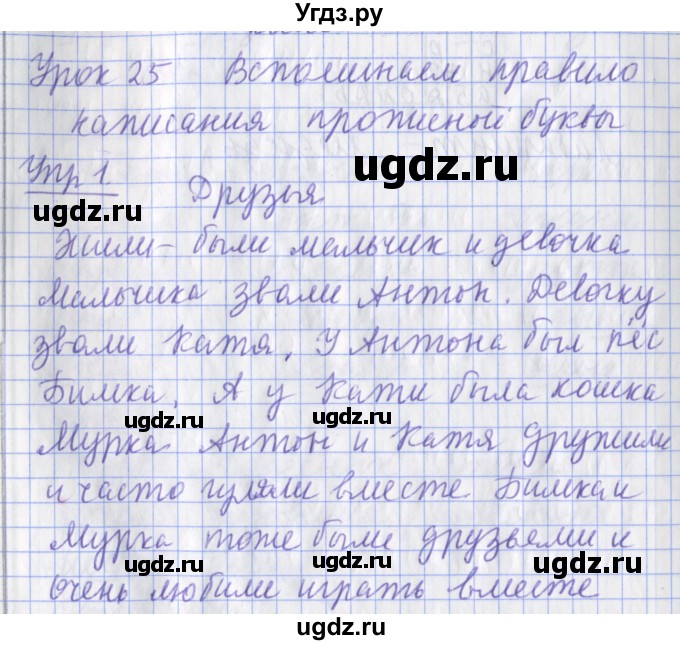 Угдз.ру
Урок 25 Вспоминаем правило
написания прописной буквы
ugdz.ru
Упр 1.
ugdz.ru
Друзья
ugdz.ru
Жили-были мальчик и девочка
Мальчика звали Антон. Девочку
звали Катя. У Антона был пёс
Бимка. А у Кати была кошка
ugdz.ru ugdz.ru
Мурка Антон и Катя дружили
и часто гуляли вместе Бимка и
Мурка тоже были друзьями и
ugdz.ru ugdz.ru
очень любили играть вместе
ugdz.ru